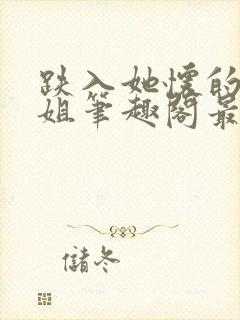 跌入她懷的
姐筆趣閣最
儲冬